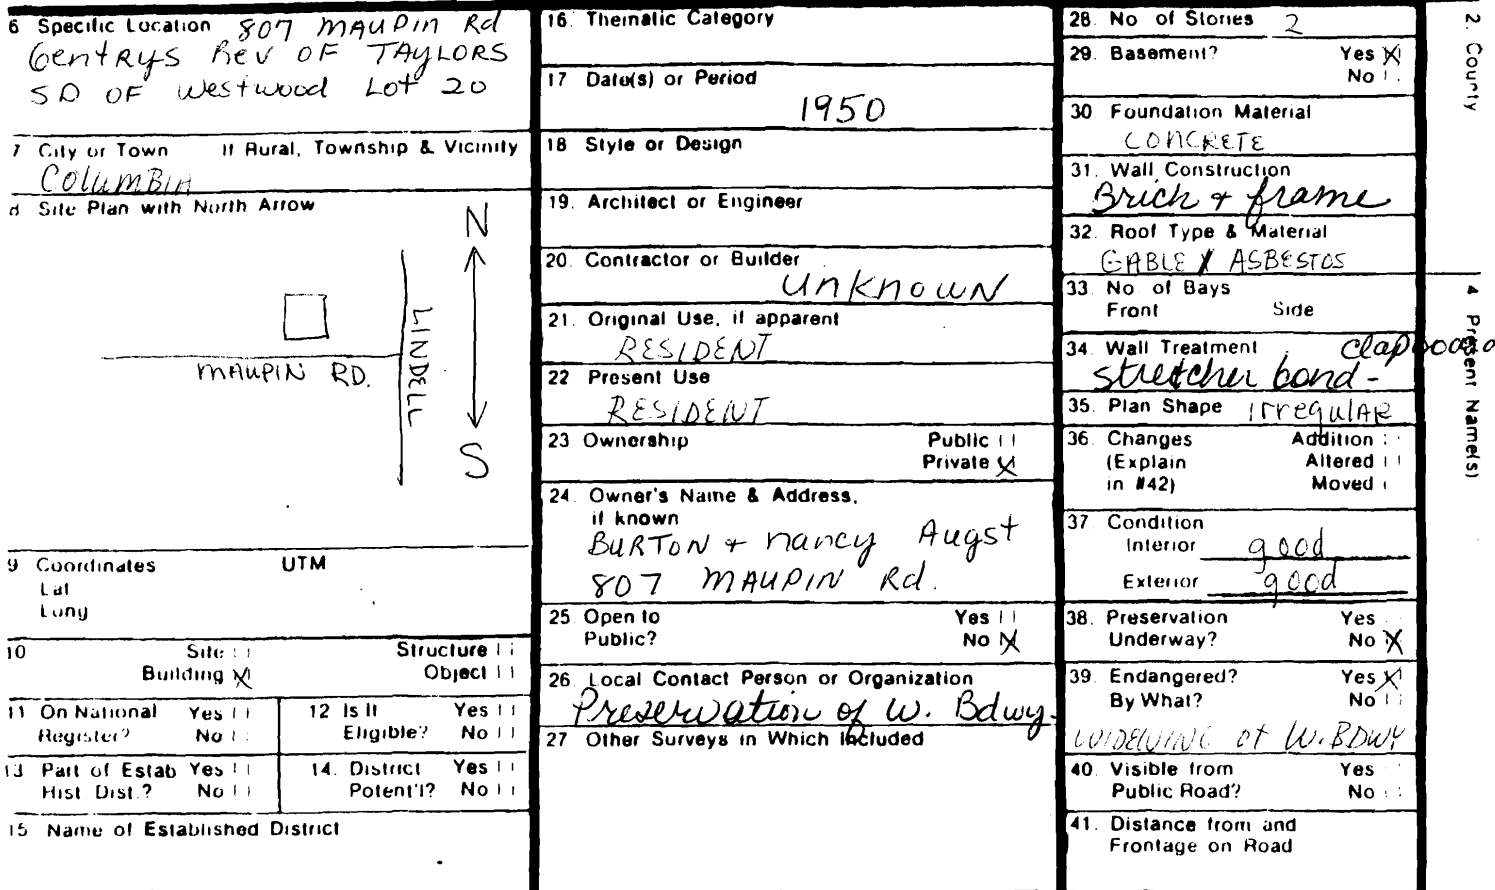 6 Specific Location 807 MAUPIN Rd
Gentrys Rev OF TAYLORS
SD OF Westwood Lot 20
7 City or Town If Rural, Township & Vicinity
COLUMBIA
8 Site Plan with North Arrow
N
LINDELL
MAUPIN RD.
S
9 Coordinates UTM
Lat
Long
10 Site Structure
Building X Object
11 On National Yes 12 Is It Yes
Register? No Eligible? No
13 Part of Estab Yes 14. District Yes
Hist. Dist.? No Potent'l? No
15 Name of Established District
16. Thematic Category
17 Date(s) or Period
1950
18 Style or Design
19. Architect or Engineer
20. Contractor or Builder
UNKNOWN
21. Original Use, if apparent
RESIDENT
22 Present Use
RESIDENT
23 Ownership Public
Private X
24. Owner's Name & Address,
if known
BURTON + nancy Augst
807 MAUPIN Rd.
25 Open to Yes
Public? No X
26. Local Contact Person or Organization
Preservation of W. Bdwy.
27 Other Surveys in Which Included
28. No of Stories 2
29. Basement? Yes X
No
30 Foundation Material
CONCRETE
31. Wall Construction
Brick + frame
32. Roof Type & Material
GABLE ASBESTOS
33. No of Bays
Front Side
34. Wall Treatment clapboard
stretcher bond -
35. Plan Shape irregulAR
36. Changes Addition
(Explain Altered
in #42) Moved
37 Condition
Interior good
Exterior good
38. Preservation Yes
Underway? No X
39. Endangered? Yes X
By What? No
WIDENING of W. BDWY
40. Visible from Yes
Public Road? No
41. Distance from and
Frontage on Road
2. County
4 Present Name(s)